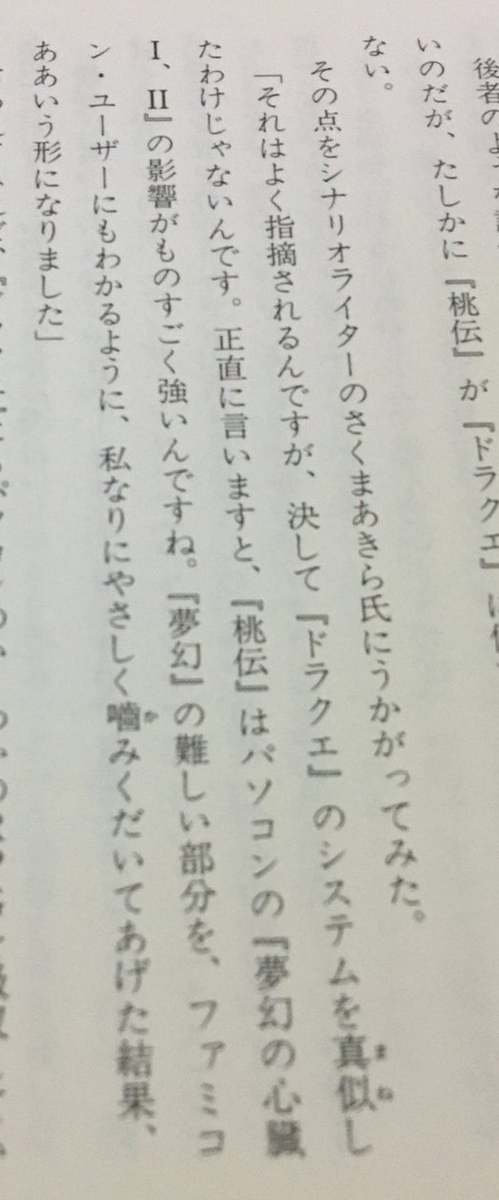 いのだが、たしかに『桃伝』が『ドラクエ』に
ない。
その点をシナリオライターのさくまあきら氏にうかがってみた。
「それはよく指摘されるんですが、決して『ドラクエ』のシステムを真似し
たわけじゃないんです。正直に言いますと、『桃伝』はパソコンの『夢幻の心臓
I、II』の影響がものすごく強いんですね。『夢幻』の難しい部分を、ファミコ
ン・ユーザーにもわかるように、私なりにやさしく嚙みくだいてあげた結果、
ああいう形になりました」